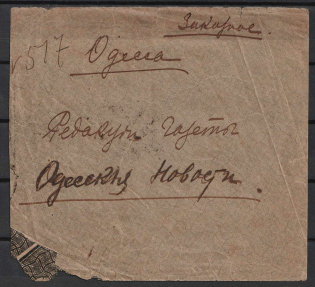 Заказное.
№ 517 Одесса
Редакция Газеты
Одесскія Новости.